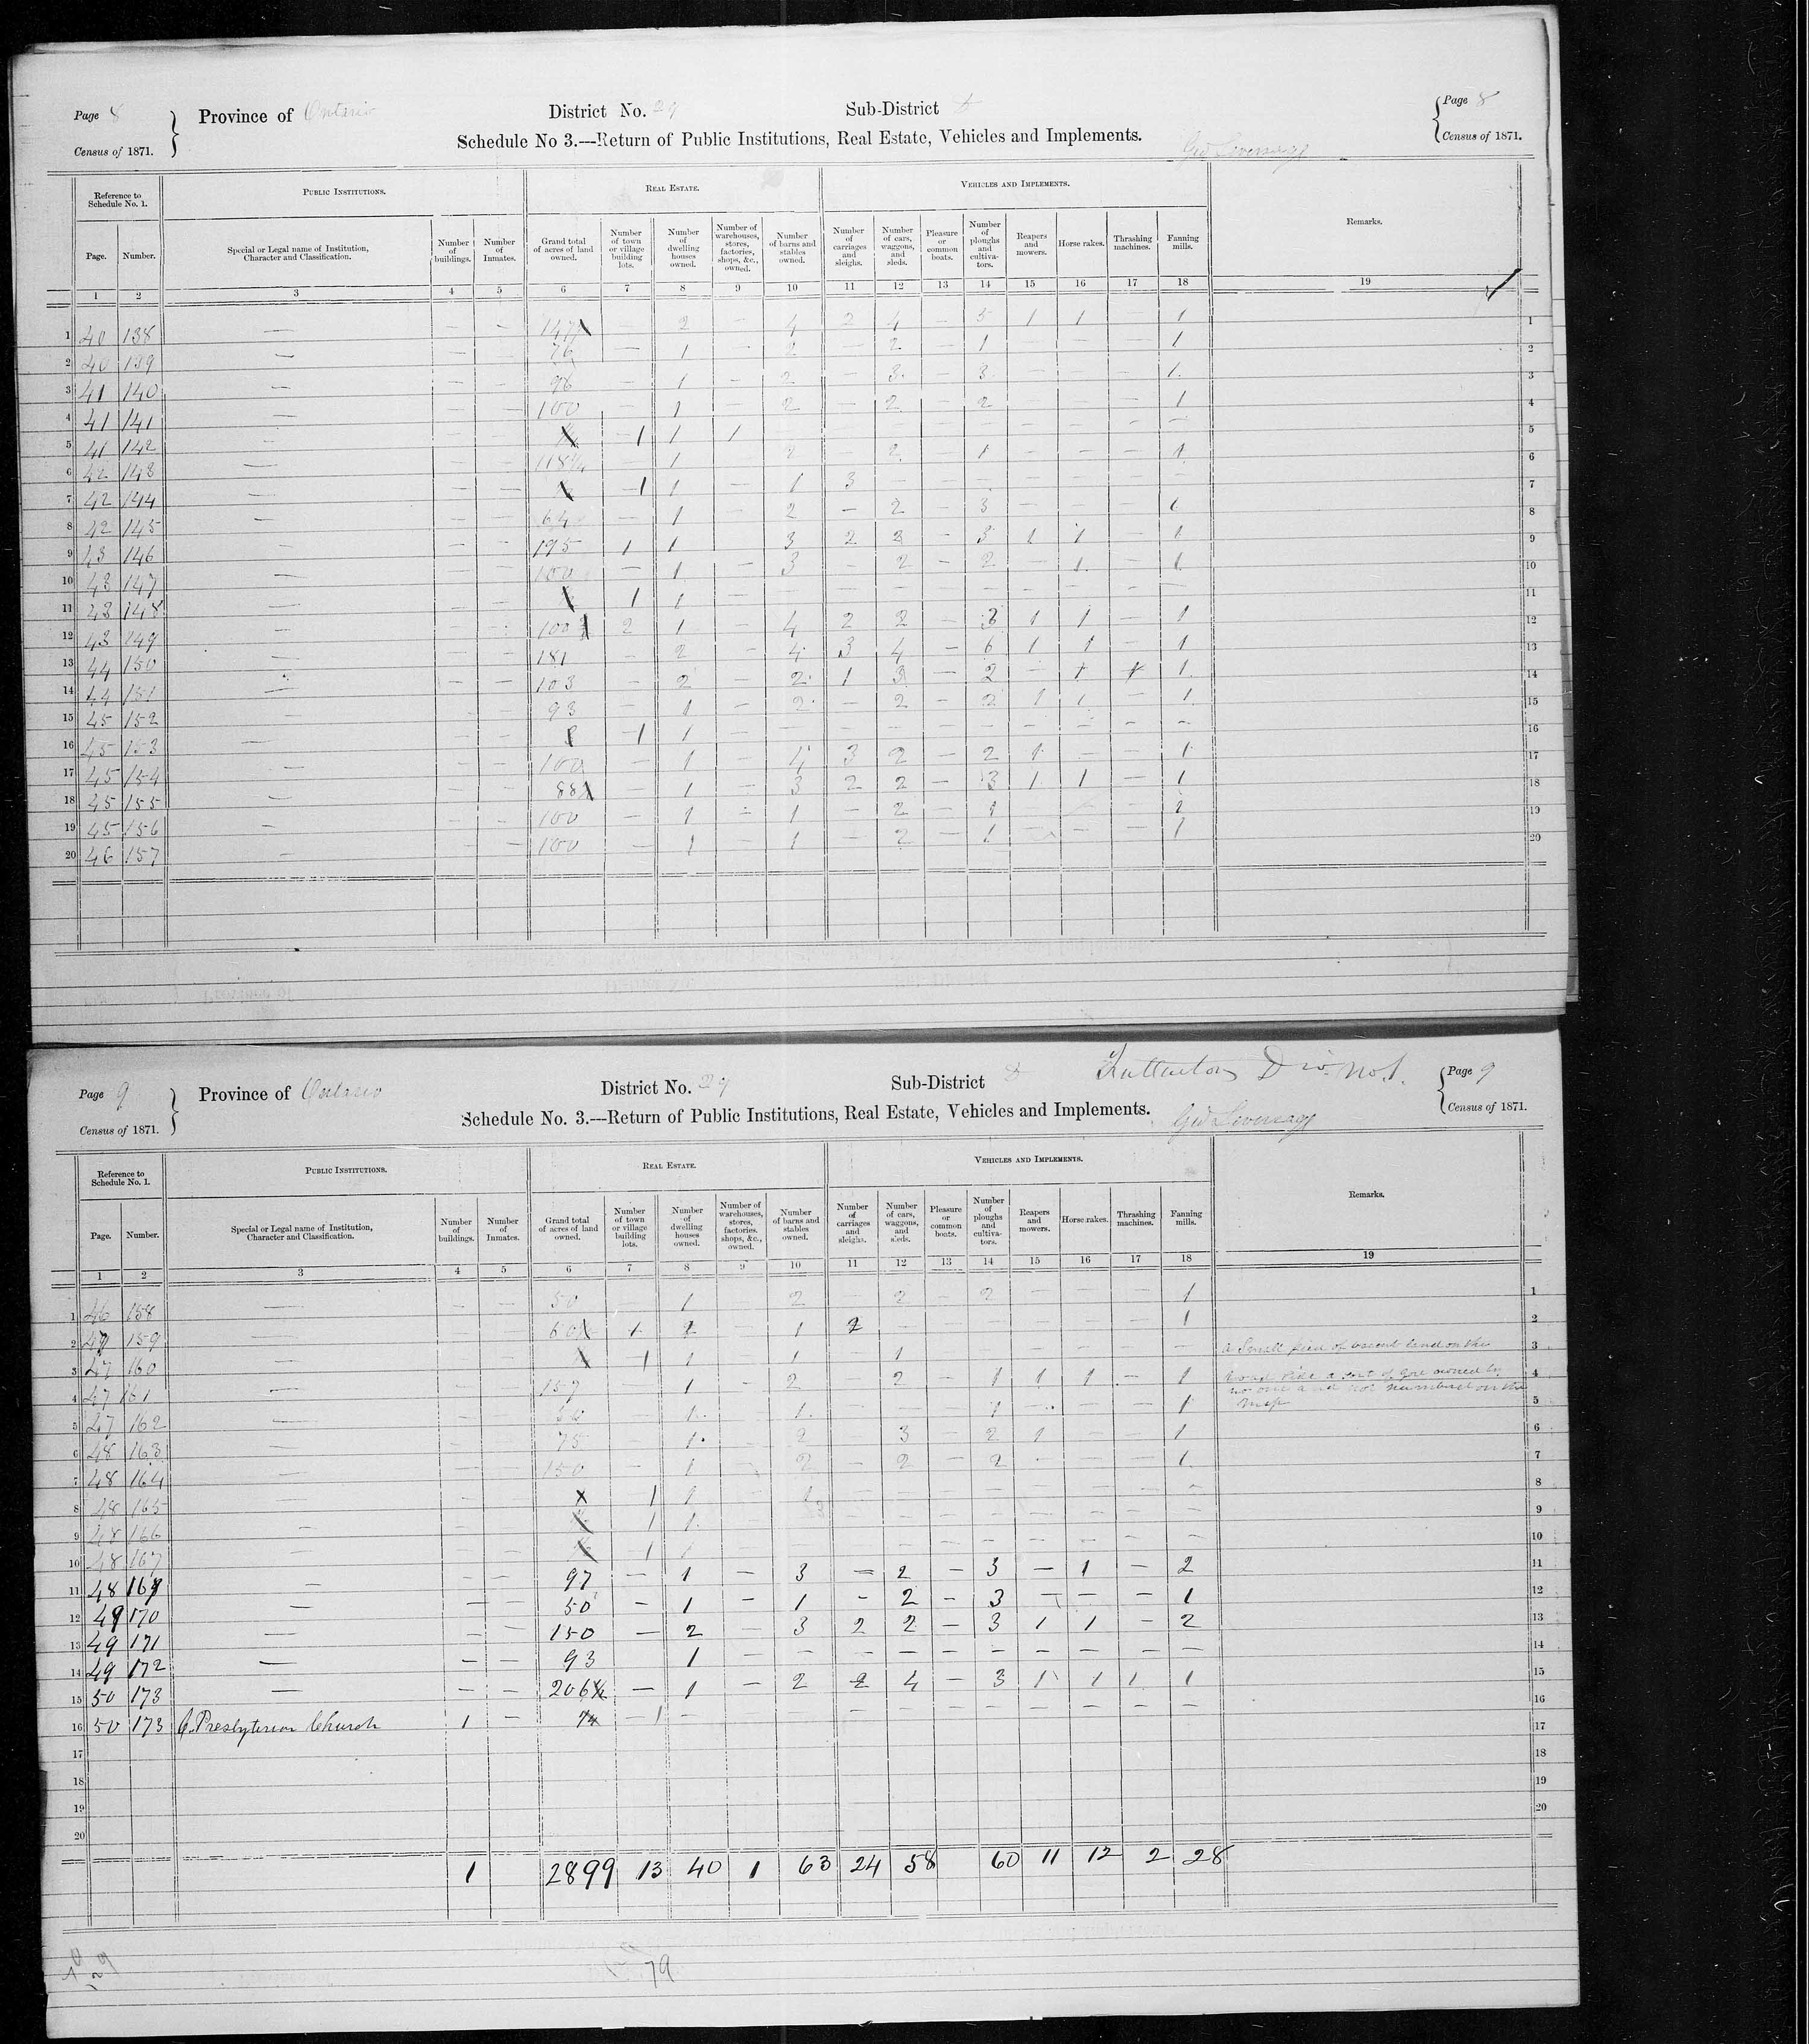 Page 8
Census of 1871.
Province of Ontario
District No. 29
Sub-District
Page 8
Census of 1871.
Schedule No 3.—Return of Public Institutions, Real Estate, Vehicles and Implements.
Geo Liversage
Reference to Schedule No. 1.
Public Institutions.
Real Estate.
Vehicles and Implements.
Remarks.
Page.
Number.
Special or Legal name of Institution, Character and Classification.
Number of buildings.
Number of Inmates.
Grand total of acres of land owned.
Number of town or village building lots.
Number of dwelling houses owned.
Number of warehouses, stores, factories, shops, &c., owned.
Number of barns and stables owned.
Number of carriages and sleighs.
Number of cars, waggons, and sleds.
Pleasure or common boats.
Number of ploughs and cultivators.
Reapers and mowers.
Horse rakes.
Thrashing machines.
Fanning mills.
1 2 3 4 5 6 7 8 9 10 11 12 13 14 15 16 17 18 19
1 40 138 — — — 147 — 2 — 4 2 4 — 5 1 1 — 1 1
2 40 139 — — — 76 — 1 — 2 — 2 — 1 — — — 1 2
3 41 140 — — — 96 — 1 — 2 — 3 — 3 — — — 1 3
4 41 141 — — — 100 — 1 — 2 — 2 — 2 — — — 1 4
5 41 142 — — — 1 1 1 — — — — — — — — 5
6 42 143 — — — 118 — 1 2 2 — 1 — — — 1 6
7 42 144 — — — 1 1 — 1 3 — — — — — — — 7
8 42 145 — — — 64 — 1 2 — 2 — 3 — — — 1 8
9 43 146 — — — 195 1 1 3 2 — 3 1 1 — 1 9
10 43 147 — — — 100 — 1 — 3 — 2 — 2 — 1 — 1 10
11 43 148 — — — 1 1 — — — — — — — — — — 11
12 43 149 — — — 100 2 1 — 4 2 2 — 3 1 1 — 1 12
13 44 150 — — — 181 — 2 — 4 3 4 — 6 1 1 — 1 13
14 44 151 — — — 103 — 2 — 2 1 3 — 2 — 1 14
15 45 152 — — — 93 — 1 — 2 — 2 — 2 1 1 — 1 15
16 45 153 — — — 1 1 — — — — — — — — — — 16
17 45 154 — — — 100 — 1 — 4 3 2 — 2 1 — — 1 17
18 45 155 — — — 88 — 1 — 3 2 2 — 3 1 1 — 1 18
19 45 156 — — — 100 — 1 — 1 2 — 1 — 19
20 46 157 — — — 100 — 1 — 1 — 2 — 1 — — — 1 20
Page 9
Census of 1871.
Province of Ontario
District No. 29
Sub-District
Div. No. 1.
Page 9
Census of 1871.
Schedule No. 3.—Return of Public Institutions, Real Estate, Vehicles and Implements.
Geo Liversage
Reference to Schedule No. 1.
Public Institutions.
Real Estate.
Vehicles and Implements.
Remarks.
Page.
Number.
Special or Legal name of Institution, Character and Classification.
Number of buildings.
Number of Inmates.
Grand total of acres of land owned.
Number of town or village building lots.
Number of dwelling houses owned.
Number of warehouses, stores, factories, shops, &c., owned.
Number of barns and stables owned.
Number of carriages and sleighs.
Number of cars, waggons, and sleds.
Pleasure or common boats.
Number of ploughs and cultivators.
Reapers and mowers.
Horse rakes.
Thrashing machines.
Fanning mills.
1 2 3 4 5 6 7 8 9 10 11 12 13 14 15 16 17 18 19
1 46 158 — — — 50 1 — 2 — 2 — 2 — — — 1 1
2 47 159 — — 60 1 2 — 1 2 — — — — — — 1 2
3 47 160 — — — 1 1 — 1 — 1 — — — — — — a Small piece of vacant land on the 3
4 47 161 — — — 157 — 1 — 2 — 2 — 1 1 1 — 1 road side a sort of gore owned by 4
no one and not numbered on the
5 47 162 — — — — 1 — 1 — — — 1 — — — 1 map 5
6 48 163 — — — 75 — 1 — 2 3 — 2 1 — — 1 6
7 48 164 — — — 150 — 1 — 2 — 2 — 2 — — — 1 7
8 48 165 — — 1 1 — 1 — — — — — — — — 8
9 48 166 — — 1 1 — — — — — — — — 9
10 48 167 — — — 1 1 — — — — — — — — 10
11 48 169 — — — 97 — 1 — 3 — 2 — 3 — 1 — 2 11
12 49 170 — — — 50 — 1 — 1 — 2 — 3 — — — 1 12
13 49 171 — — — 150 — 2 — 3 2 2 — 3 1 1 — 2 13
14 49 172 — — — 93 1 — — — — — — — — — — 14
15 50 173 — — — 206 — 1 — 2 2 4 — 3 1 1 1 1 15
16 50 173 C. Presbyterian Church 1 — — 1 — — — — — — — 16
17 17
18 18
19 19
20 20
1 2899 13 40 1 63 24 58 60 11 12 2 28
79